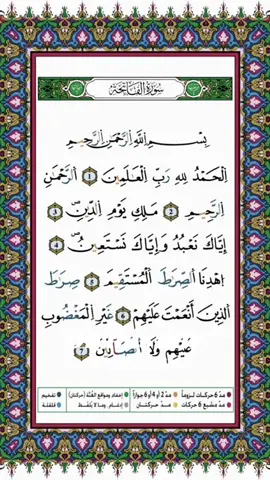 سُورَةُ الْفَاتِحَةِ
بِسْمِ اِللَّهِ اِلرَّحْمَٰنِ اِلرَّحِيمِ
اِلْحَمْدُ لِلهِ رَبِّ اِلْعَٰلَمِينَ 1 اَلرَّحْمَٰنِ
اِلرَّحِيمِ 2 مَلِكِ يَوْمِ اِلدِّينِۖ 3
إِيَّاكَ نَعْبُدُ وَإِيَّاكَ نَسْتَعِينُۖ 4
اُهْدِنَا اَلصِّرَٰطَ اَلْمُسْتَقِيمَ 5 صِرَٰطَ
اَلذِينَ أَنْعَمْتَ عَلَيْهِمْ 6 غَيْرِ اِلْمَغْضُوبِ
عَلَيْهِمْ وَلَا اَلضَّآلِّينَۖ 7
مدّ 6 حركات لزوماً مدّ 2 أو 4 أو 6 جوازاً إخفاء ومواقع الغنّة (حركتان) تفخيم
مدّ مشبع 6 حركات مدّ حركتان إدغام، وما لا يُلفظ قلقلة